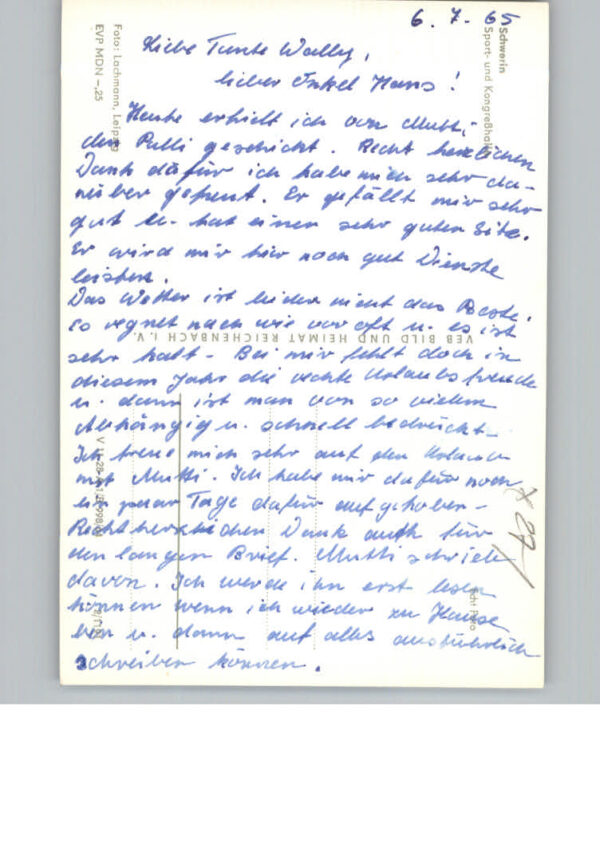 6. 7. 65
Liebe Tante Wally,
lieber Onkel Hans!
Heute erhielt ich von Mutti,
den Pulli geschickt. Recht herzlichen
Dank dafür ich habe mich sehr da-
rüber gefreut. Er gefällt mir sehr
gut u. hat einen sehr guten Sitz.
Er wird mir hier noch gut Dienste
leisten.
Das Wetter ist leider nicht das Beste.
Es regnet nach wie vor oft u. es ist
sehr kalt - Bei mir fehlt doch in
diesem Jahr die rechte Urlaubsfreude
u. dann ist man von so vielem
Abhängig u. schnell bedrückt -
Ich freue mich sehr auf den Urlaub
mit Mutti. Ich habe mir dafür noch
ein paar Tage dafür aufgehoben -
Recht herzlichen Dank auch für
den langen Brief. Mutti schrieb
davon. Ich werde ihn erst lesen
können wenn ich wieder zu Hause
bin u. dann auf alles ausführlich
schreiben können.
x 27
Schwerin
Sport- und Kongreßhalle
Foto: Lachmann, Leipzig
EVP MDN -,25
VEB BILD UND HEIMAT REICHENBACH i. V.
Echt Foto